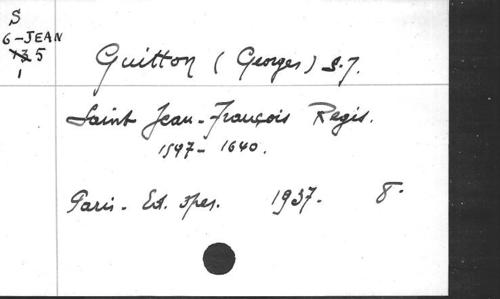 S
6-JEAN
x3 5
1
Guitton (Georges) S.J.
Saint Jean-François Regis.
1597-1640.
Paris. Ed. Spes. 1937. 8°